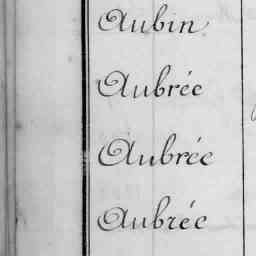 Aubin
Aubrée
Aubrée
Aubrée